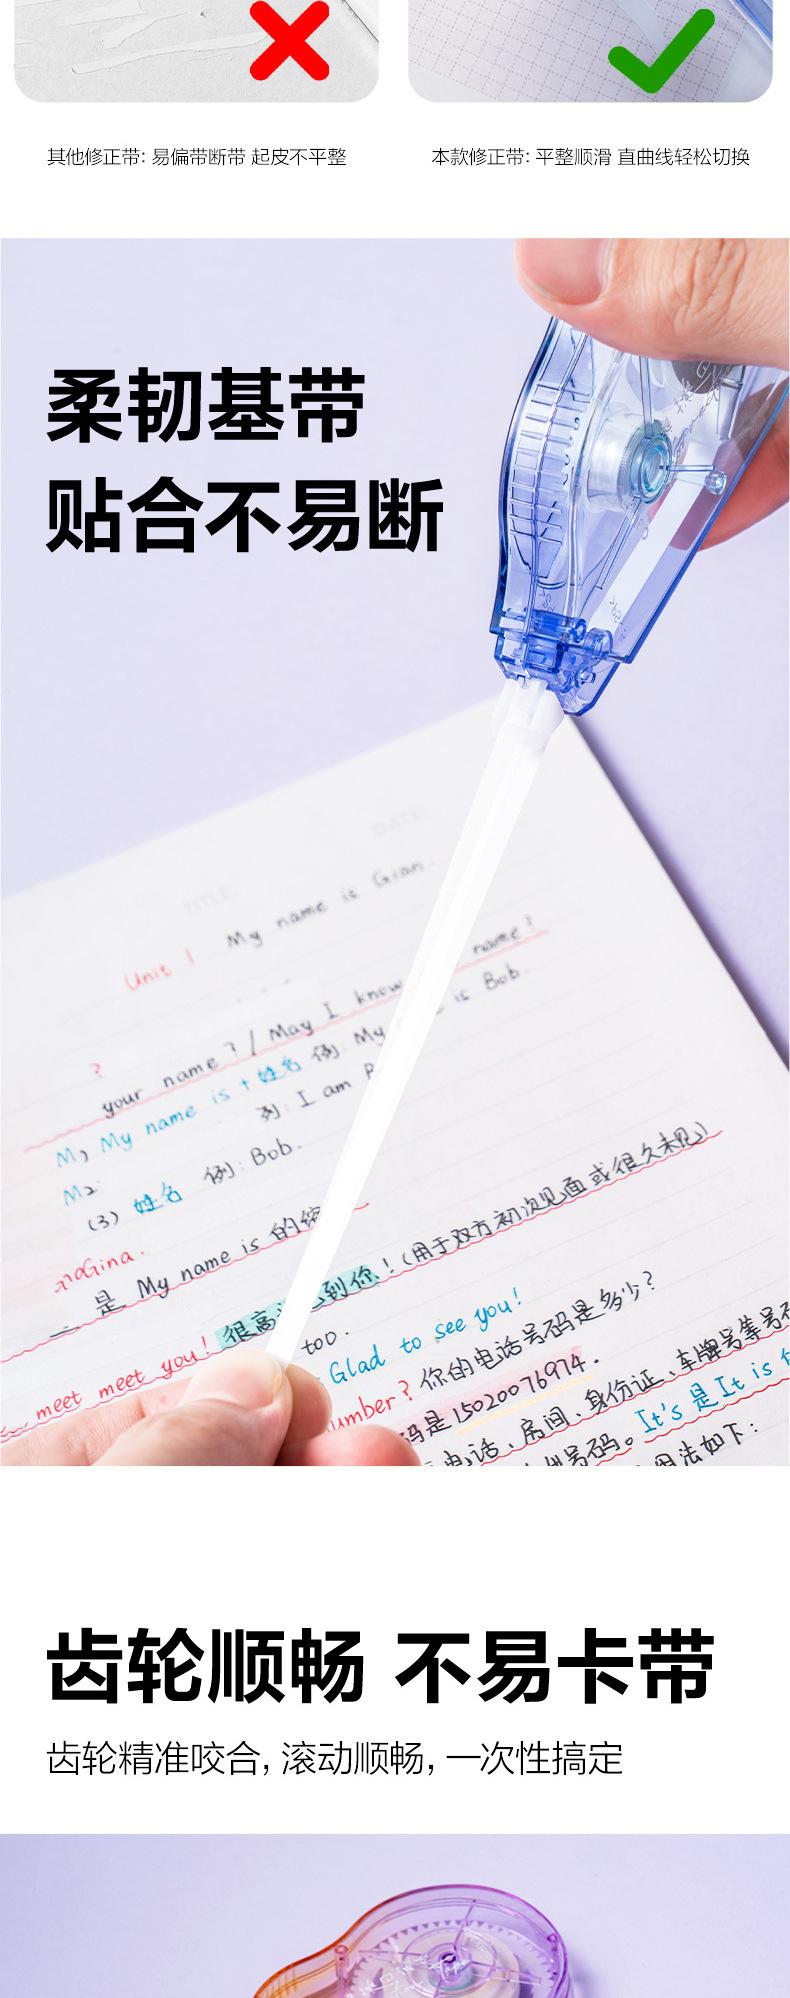 其他修正带: 易偏带断带 起皮不平整
本款修正带: 平整顺滑 直曲线轻松切换
柔韧基带
贴合不易断
DATE:
TITLE:
Unit 1 My name is Gian.
name?
your name? / May I know
is Bob.
?
M1 My name is + 姓名 例: My
例: I am
M2
(3) 姓名 例: Bob.
Gina.
是 My name is 的
meet meet you! 很高 到你! (用于双方初次见面或很久未见)
too.
Glad to see you!
number? 你的电话号码是多少?
码是15020076974.
电话、房间、身份证、车牌号等号码
号码。It's 是 It is
用法如下:
齿轮顺畅 不易卡带
齿轮精准咬合, 滚动顺畅, 一次性搞定